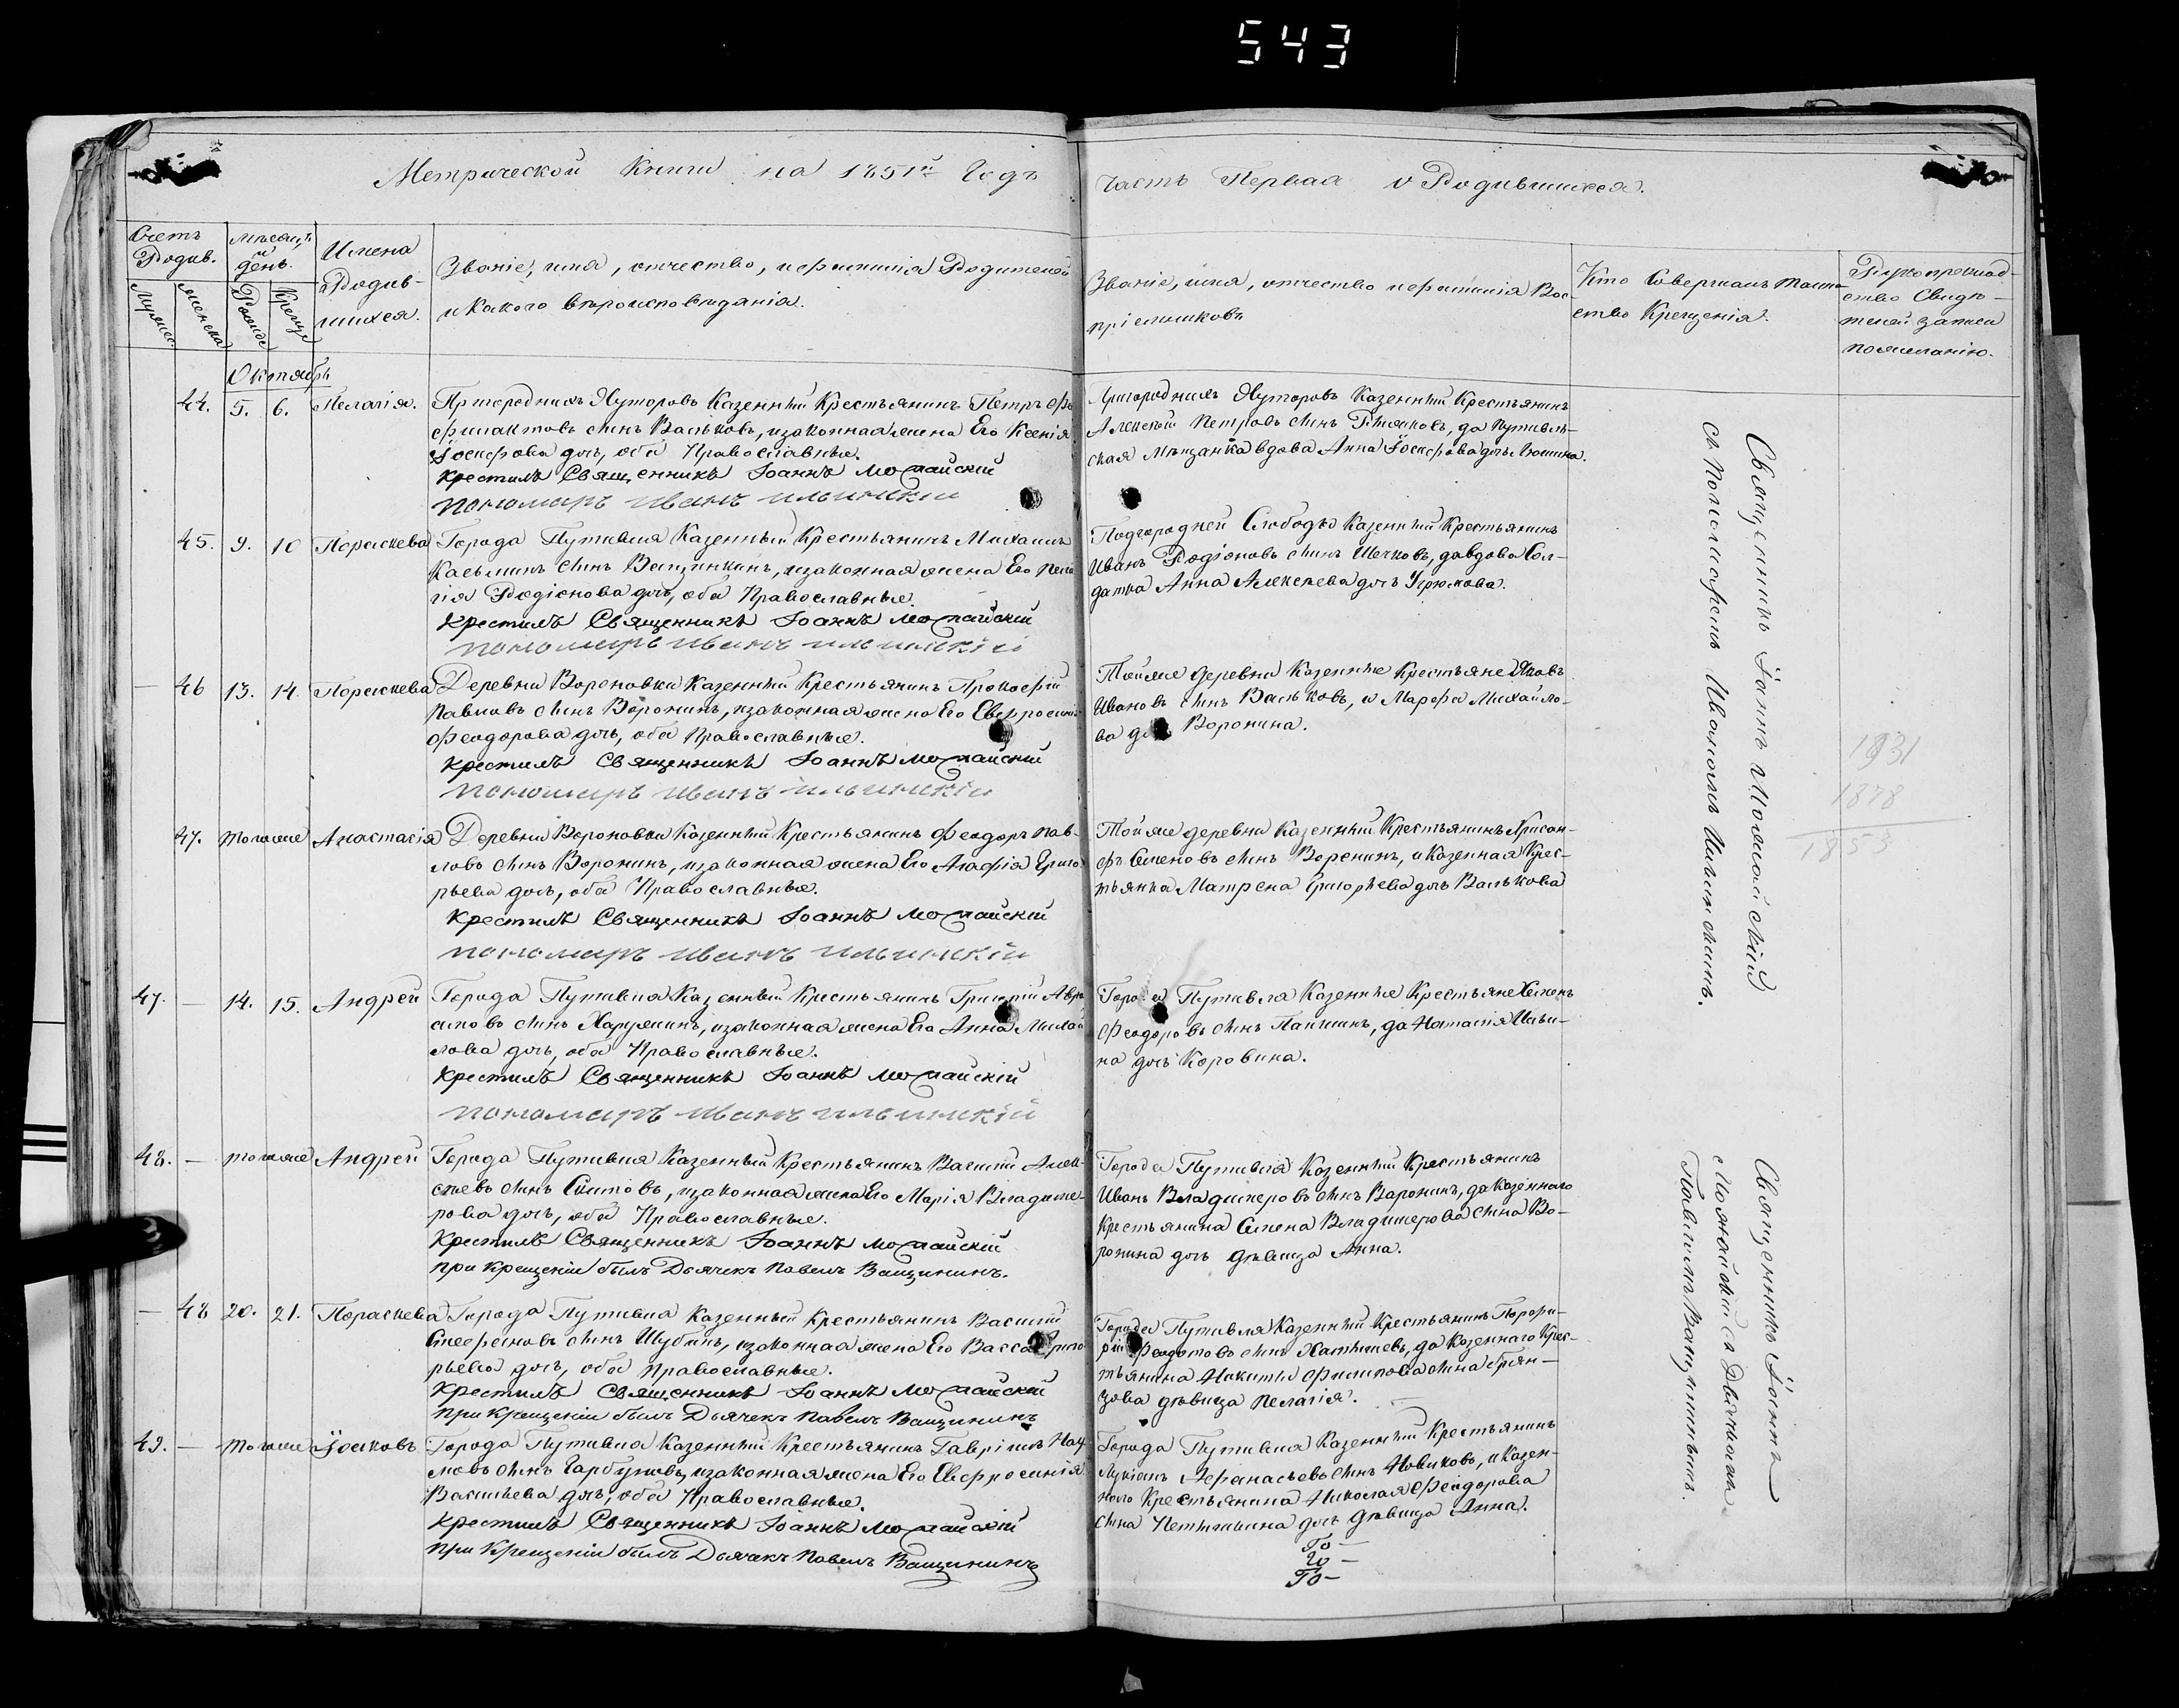 543
Метрической Книги на 1851й Годъ
Часть Первая о Родившихся.
Счетъ Родив.
Мужеска
женска
Мѣсяцъ и день.
Рожде
Креще
Имена Родив-
шихся.
Званіе, имя, отчество, и фамилія Родителей
и какого вѣроисповѣданія.
Званіе, имя, отчество и фамилія Вос-
пріемниковъ
Кто Совершалъ Таин-
ство Крещенія.
Рукоприклад-
ство Свидѣ-
телей записи
по желанію.
Октябрь
44. 5. 6. Пелагія.
Пригороднихъ Хуторовъ Казенный Крестьянинъ Петръ Фе
филактовъ сынъ Вальковъ, и законная жена Его Ксенія
Іосифова дочь, оба Православные.
Крестилъ Священникъ Іоаннъ Можайскій
пономарь Иванъ Ильинскій
Пригороднихъ Хуторовъ Казенный Крестьянинъ
Алексѣй Петровъ сынъ да Путивль-
ская Мѣщанка вдова Анна Іосифова дочь
45. 9. 10 Параскева
Города Путивля Казенный Крестьянинъ Михаилъ
Касьминъ сынъ Ващинкинъ, и законная жена Его Пела
гія Родіонова дочь, оба Православные.
Крестилъ Священникъ Іоаннъ Можайскій
пономарь Иванъ Ильинскій
Подгородней Слободы Казенный Крестьянинъ
Иванъ Родіоновъ сынъ Шечковъ, да вдова Сол-
датка Анна Алексѣева дочь Угрюмова.
— 46 13. 14. Параскева
Деревни Вороновки Казенный Крестьянинъ Прокофій
Павловъ сынъ Воронинъ, и законная жена Его Евфросинія
Феодорова дочь, оба Православные.
Крестилъ Священникъ Іоаннъ Можайскій
пономарь Иванъ Ильинскій
Той же деревни Казенные Крестьяне Яковъ
Ивановъ сынъ Вальковъ, и Марфа Михайло-
ва Воронина.
47. того же Анастасія
Деревни Вороновки Казенный Крестьянинъ Феодоръ Пав-
ловъ сынъ Воронинъ, и законная жена Его Агафія Григо
рьева дочь, оба Православные.
Крестилъ Священникъ Іоаннъ Можайскій
пономарь Иванъ Ильинскій
Той же деревни Казенный Крестьянинъ Хрисан-
фъ Семеновъ сынъ Воронинъ, и Казенная Крес-
тьянка Матрена Григорьева дочь Валькова
47. — 14. 15. Андрей
Города Путивля Казенный Крестьянинъ
сынъ и законная жена Его Анна
лова дочь, оба Православные.
Крестилъ Священникъ Іоаннъ Можайскій
пономарь Иванъ Ильинскій
Города Путивля Казенные Крестьяне Семенъ
Феодоровъ сынъ Папшинъ, да Наталія Ильи-
на дочь Коровина.
48. — того же Андрей
Города Путивля Казенный Крестьянинъ Василій Алек-
сѣевъ сынъ и законная жена Его Марія Владиме-
рова дочь, оба Православные.
Крестилъ Священникъ Іоаннъ Можайскій
при Крещеніи былъ Дьячекъ Павелъ Ващининъ.
Города Путивля Казенный Крестьянинъ
Иванъ Владимеровъ сынъ Варонинъ, да Казеннаго
Крестьянина Семена Владимерова сына Во-
ронина дочь дѣвица Анна.
— 48 20. 21. Параскева
Города Путивля Казенный Крестьянинъ Василій
Стефановъ сынъ Шубинъ, и законная жена Его Васса Григо
рьева дочь, оба Православные.
Крестилъ Священникъ Іоаннъ Можайскій
При Крещеніи былъ Дьячекъ Павелъ Ващининъ
Города Путивля Казенный Крестьянинъ Порфи-
рій Феодотовъ сынъ да Казеннаго Крес-
тьянина Никиты Филипова сына
дѣвица Пелагія.
49. — того же Іаковъ
Города Путивля Казенный Крестьянинъ Гавріилъ Нау
мовъ сынъ Гарбузовъ, и законная жена Его Евфросинія
Васильева дочь, оба Православные.
Крестилъ Священникъ Іоаннъ Можайскій
при Крещеніи былъ Дьячекъ Павелъ Ващининъ
Города Путивля Казенный Крестьянинъ
Лукіанъ Афанасьевъ сынъ Новиковъ, и Казен-
ного Крестьянина Николая Феодорова
сына дочь дѣвица Анна.
То —
Го —
То —
Священникъ Іоаннъ Можайскій
съ Пономаремъ Иваномъ Ильинскимъ.
Священникъ Іоаннъ
Можайскій съ Дьячкомъ
Павломъ Ващининымъ.
1931
1878
1853